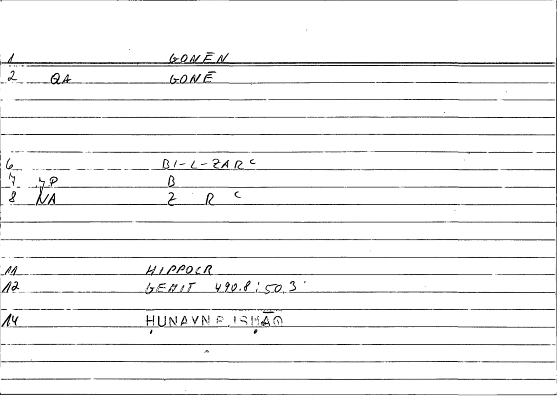 1 GONĒN
2 QA GONĒ
6 BI-L-ZARC
7 B
8 NA Z R C
11 HIPPOCR
12 GEMIT 490.8; 50.3
14 HUNAYN B. ISḤĀQ